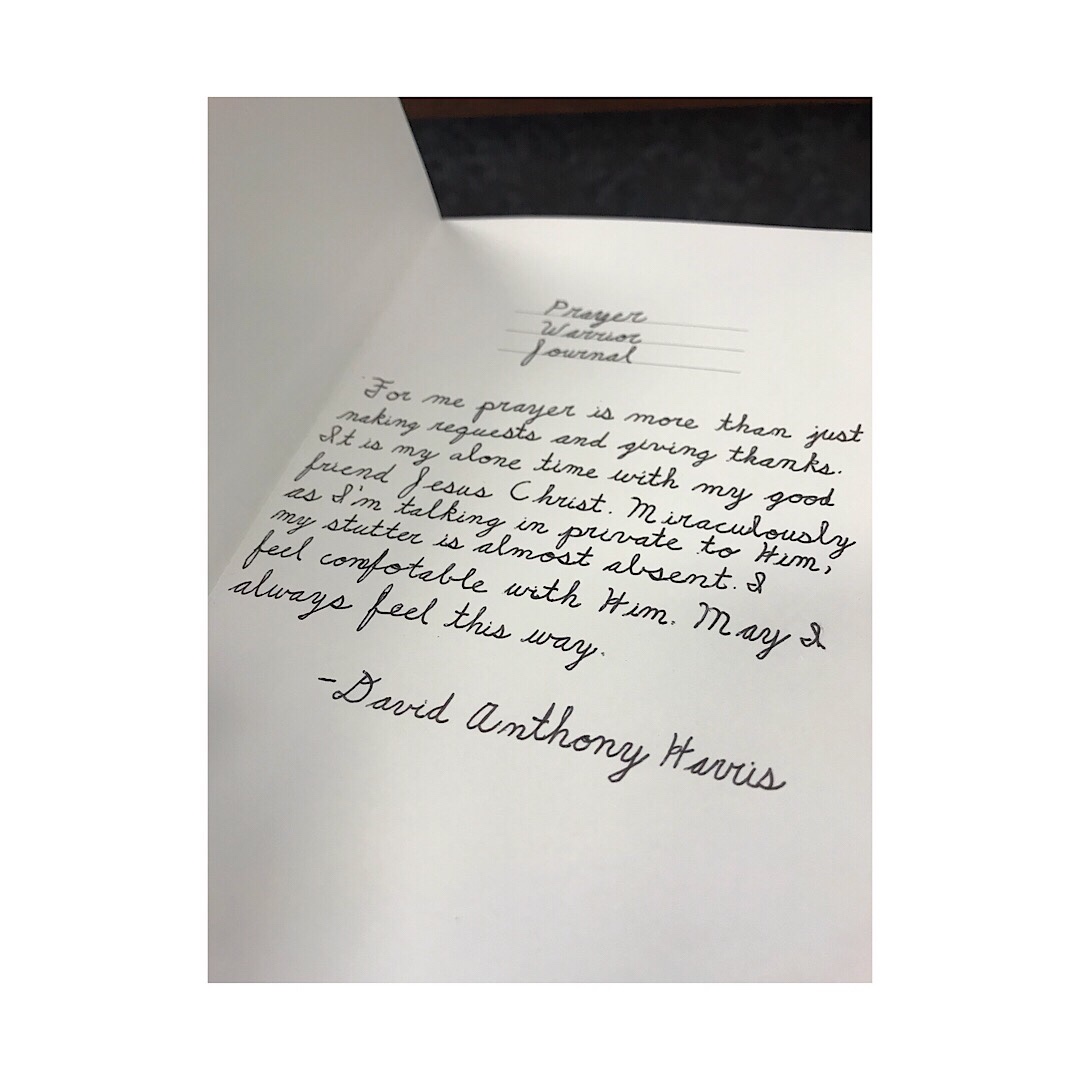 Prayer
Warrior
Journal
For me prayer is more than just
making requests and giving thanks.
It is my alone time with my good
friend Jesus Christ. Miraculously
as I'm talking in private to Him,
my stutter is almost absent. I
feel comfotable with Him. May I
always feel this way.
-David Anthony Harris